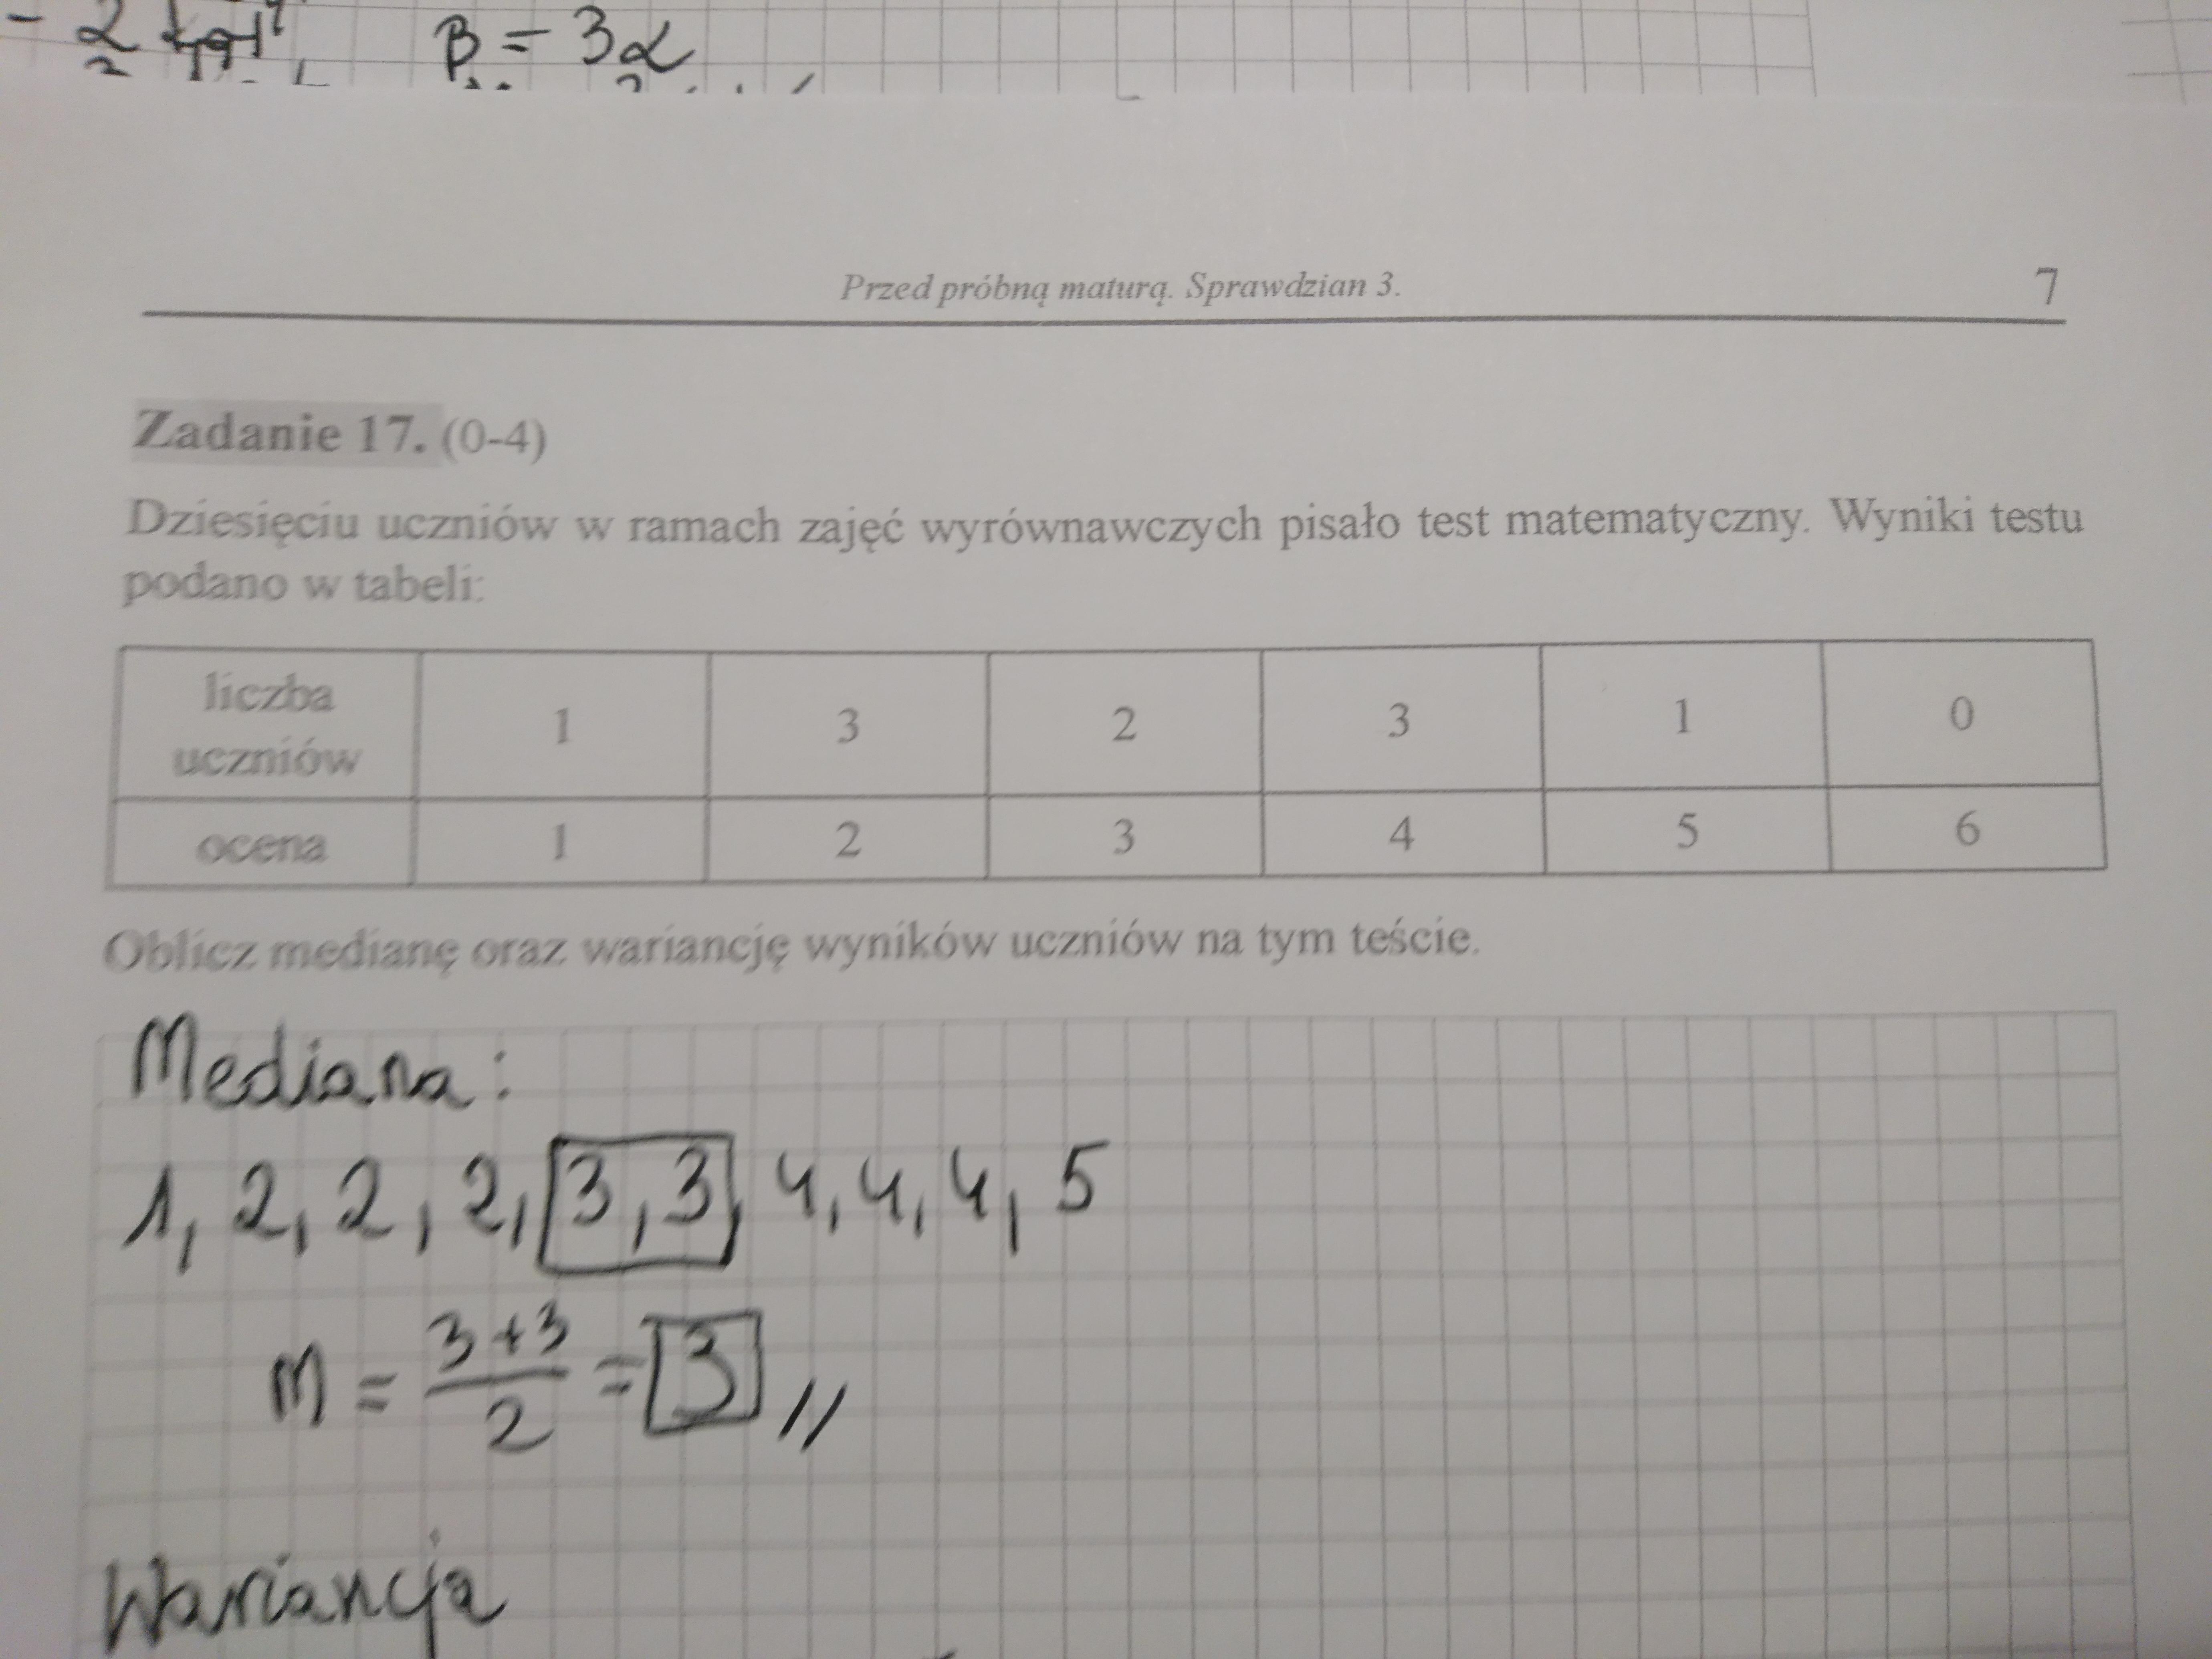 β = 3α
Przed próbną maturą. Sprawdzian 3.
7
Zadanie 17. (0-4)
Dziesięciu uczniów w ramach zajęć wyrównawczych pisało test matematyczny. Wyniki testu
podano w tabeli:
liczba uczniów 1 3 2 3 1 0
ocena 1 2 3 4 5 6
Oblicz medianę oraz wariancję wyników uczniów na tym teście.
Mediana:
1, 2, 2, 2, 3, 3, 4, 4, 4, 5
M = 3+3/2 = 3 //
Wariancja